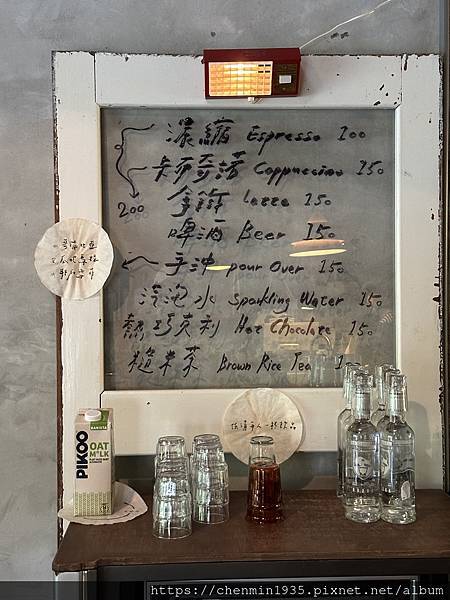 濃縮 Espresso 100
卡布奇諾 Cappuccino 150
200
拿鐵 Latte 150
啤酒 Beer 150
手沖 pour Over 150
汽泡水 Sparkling Water 150
熱巧克利 Hot Chocolate 150
糙米茶 Brown Rice Tea
低消
人一杯飲品
BARISTA
PIKOO
OAT
M*LK
https://chenmin1935.pixnet.net/album